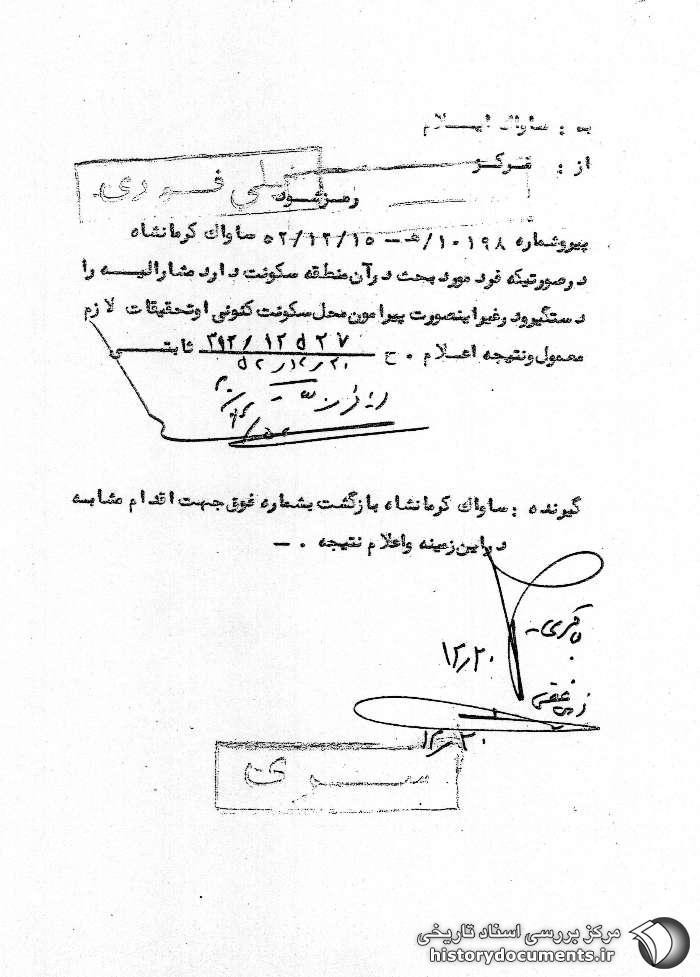 به : ساواك ایـــلام
از : مرکز
خیلی فوری
رمز شود
پیروشماره ۱۰۱۹۸/ه‍ - ۵۲/۱۲/۱۵ ساواك کرمانشاه
درصورتیکه فرد مورد بحث درآن منطقه سکونت دارد مشارالیـــه را
دستگیرود رغیراینصورت پیرامون محل سکونت کنونی اوتحقیقات لازم
معمول ونتیجه اعــلام . ح ۳۹۲/۱۲۵۲۷ ثابتـــی
۵۲/۱۲/۲۰
گیرنده : ساواك کرمانشاه بازگشت بشماره فوق جهت اقدام مشابــه
دراین زمینه واعلام نتیجه . ــ
۱۲/۲۰
۱۲/۲۰
ســری
مرکز بررسی اسناد تاریخی
historydocuments.ir